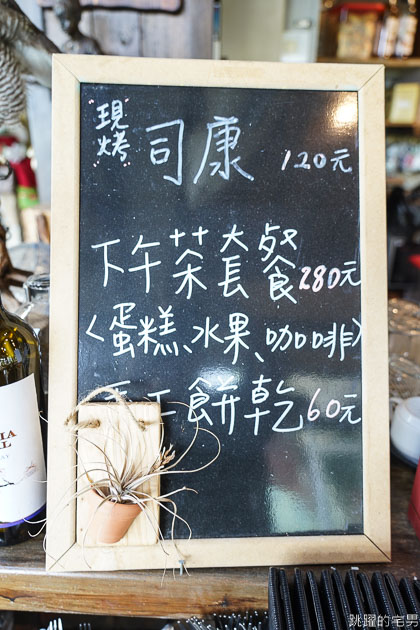 "現烤" 司康 120元
下午茶套餐 280元
〈蛋糕、水果、咖啡〉
手工餅乾 60元
跳躍的宅男